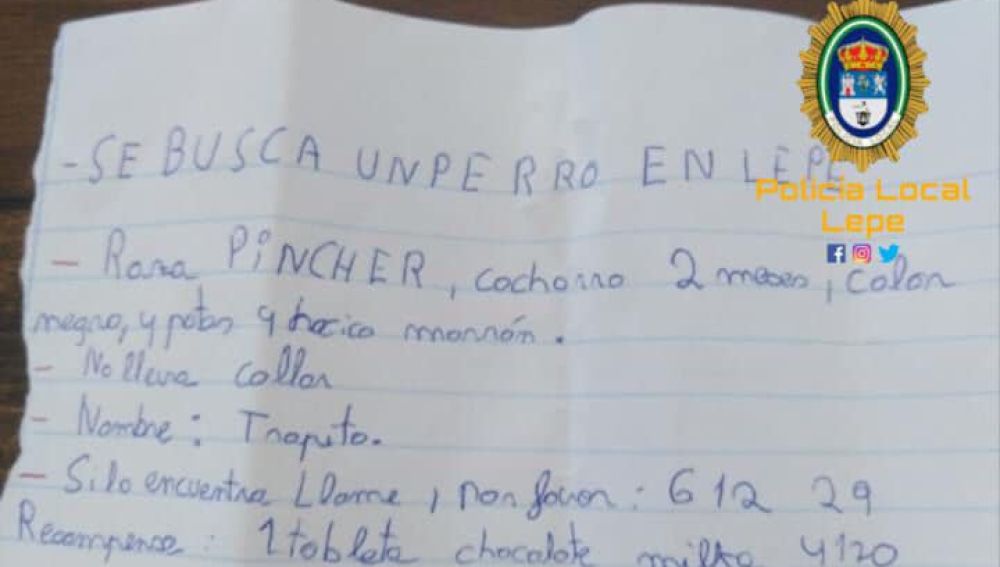 - SE BUSCA UN PERRO EN LEPE
Policía Local
Lepe
- Raza PiNCHER, cachorro 2 meses, color
negro, y patas y hocico marrón.
- No lleva collar
- Nombre: Trapito.
- Si lo encuentra LLame, por favor: 612 29
Recompensa: 1 tableta chocolate milka y 120